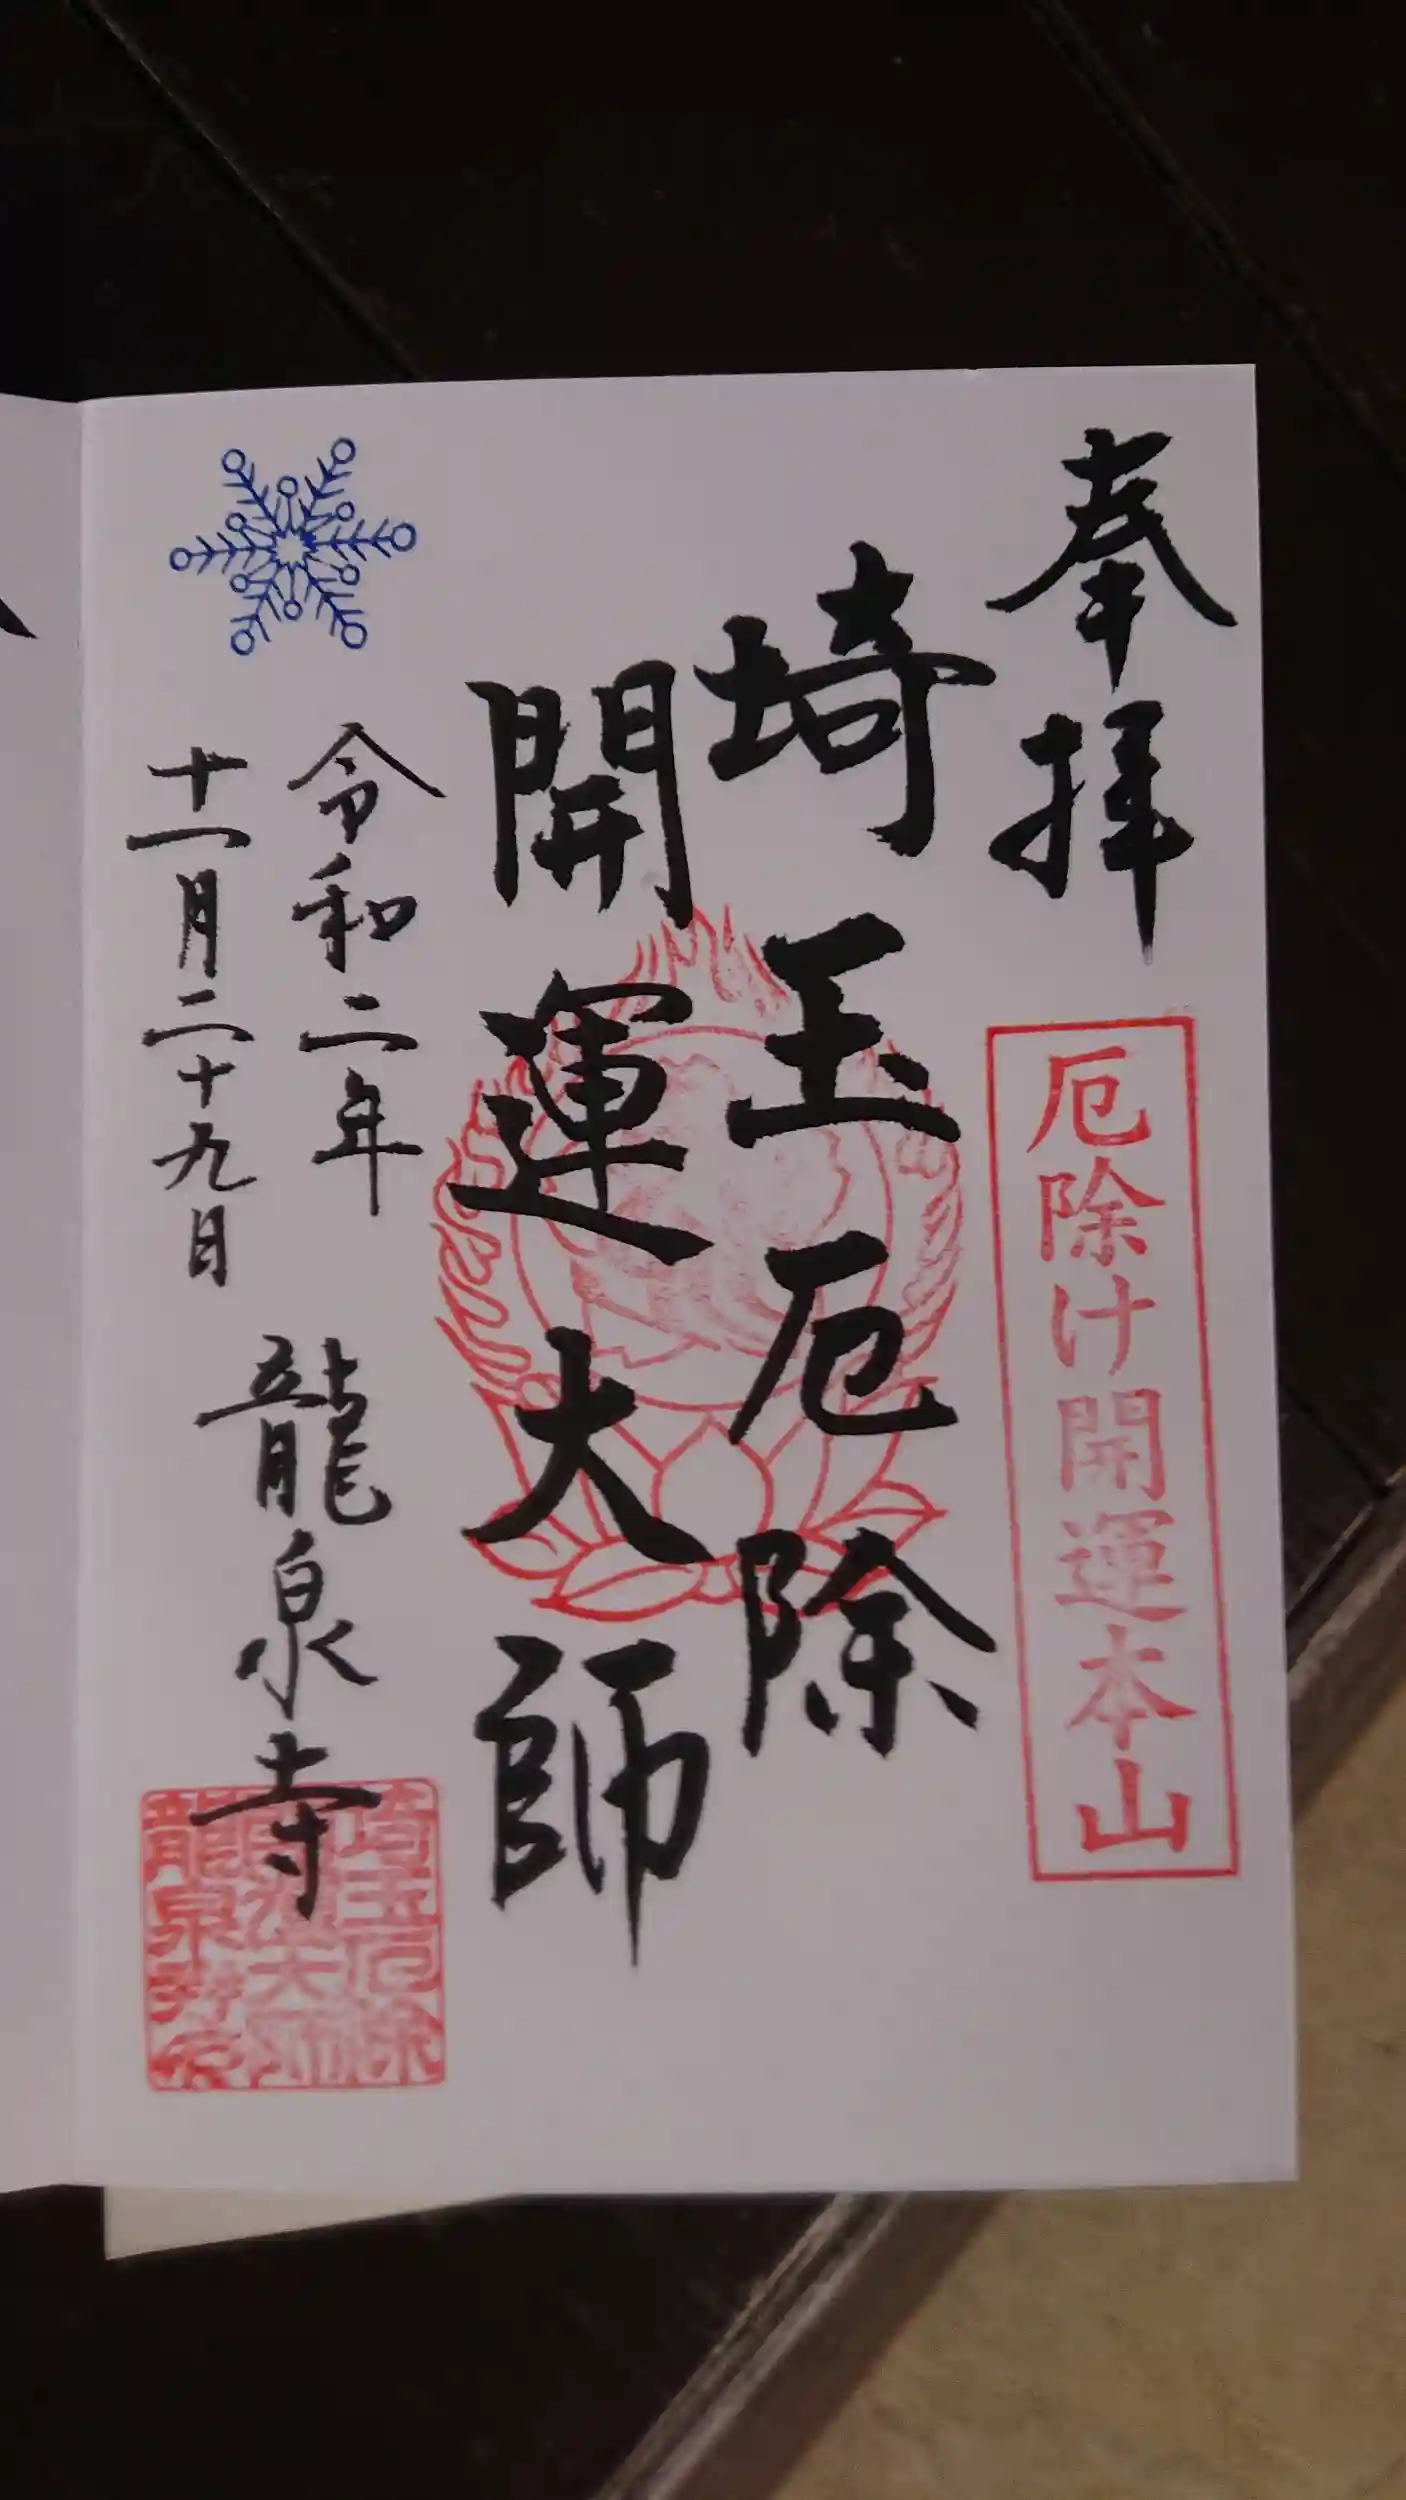 奉拝
厄除け開運本山
埼玉厄除
開運大師
令和二年
十一月二十九日
龍泉寺
埼玉厄除
開運大師
龍泉寺